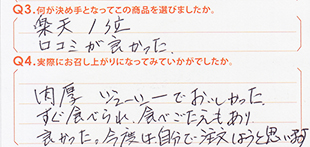 Q3.何が決め手となってこの商品を選びましたか。
楽天1位
口コミが良かった。
Q4.実際にお召し上がりになってみていかがでしたか。
肉厚 ジューシーでおいしかった。
すぐ食べられ、食べごたえもあり
良かった。今度は、自分で注文しようと思います